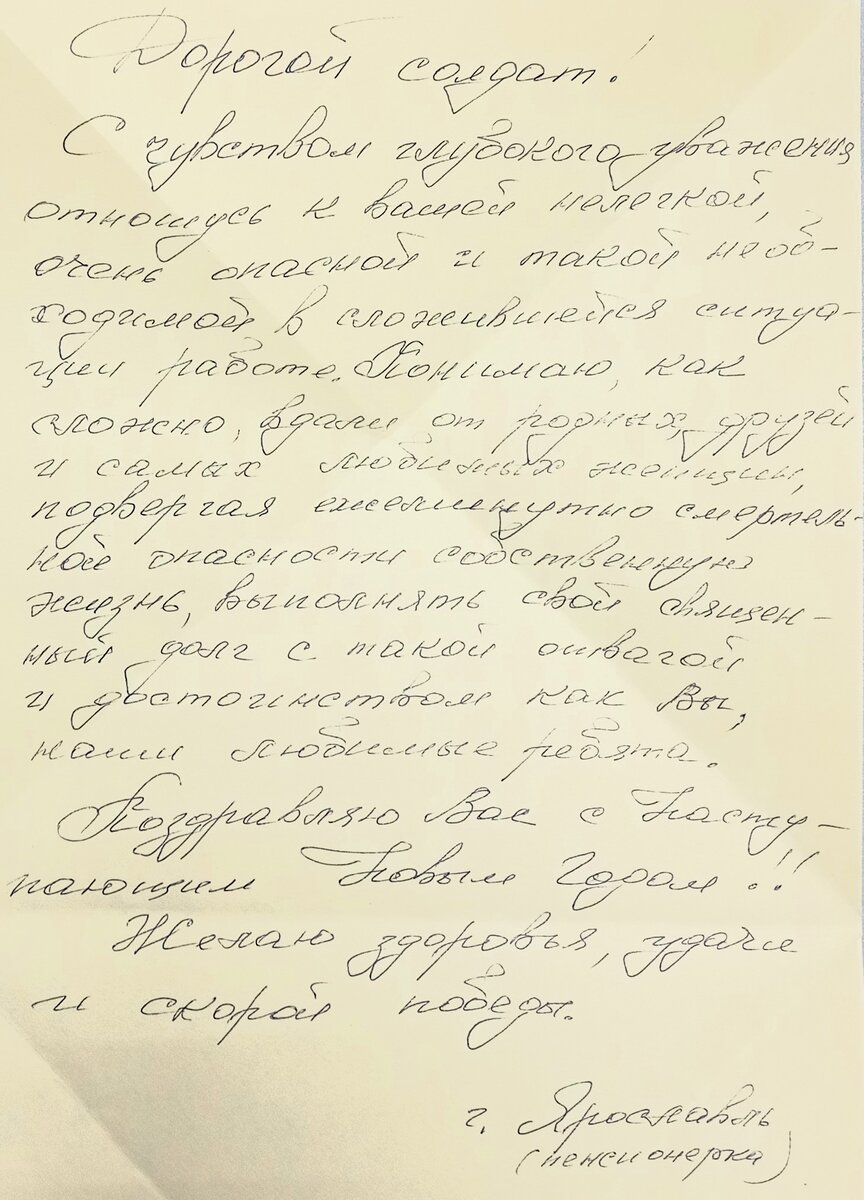 Дорогой солдат!
С чувством глубокого уважения
отношусь к вашей нелегкой,
очень опасной и такой необ-
ходимой в сложившейся ситуа-
ции работе. Понимаю, как
сложно, вдали от родных, друзей
и самых любимых женщин,
подвергая ежеминутно смертель-
ной опасности собственную
жизнь, выполнять свой священ-
ный долг с такой отвагой
и достоинством как Вы,
наши любимые ребята.
Поздравляю Вас с Насту-
пающим Новым Годом!!
Желаю здоровья, удачи
и скорой победы.
г. Ярославль
(пенсионерка)